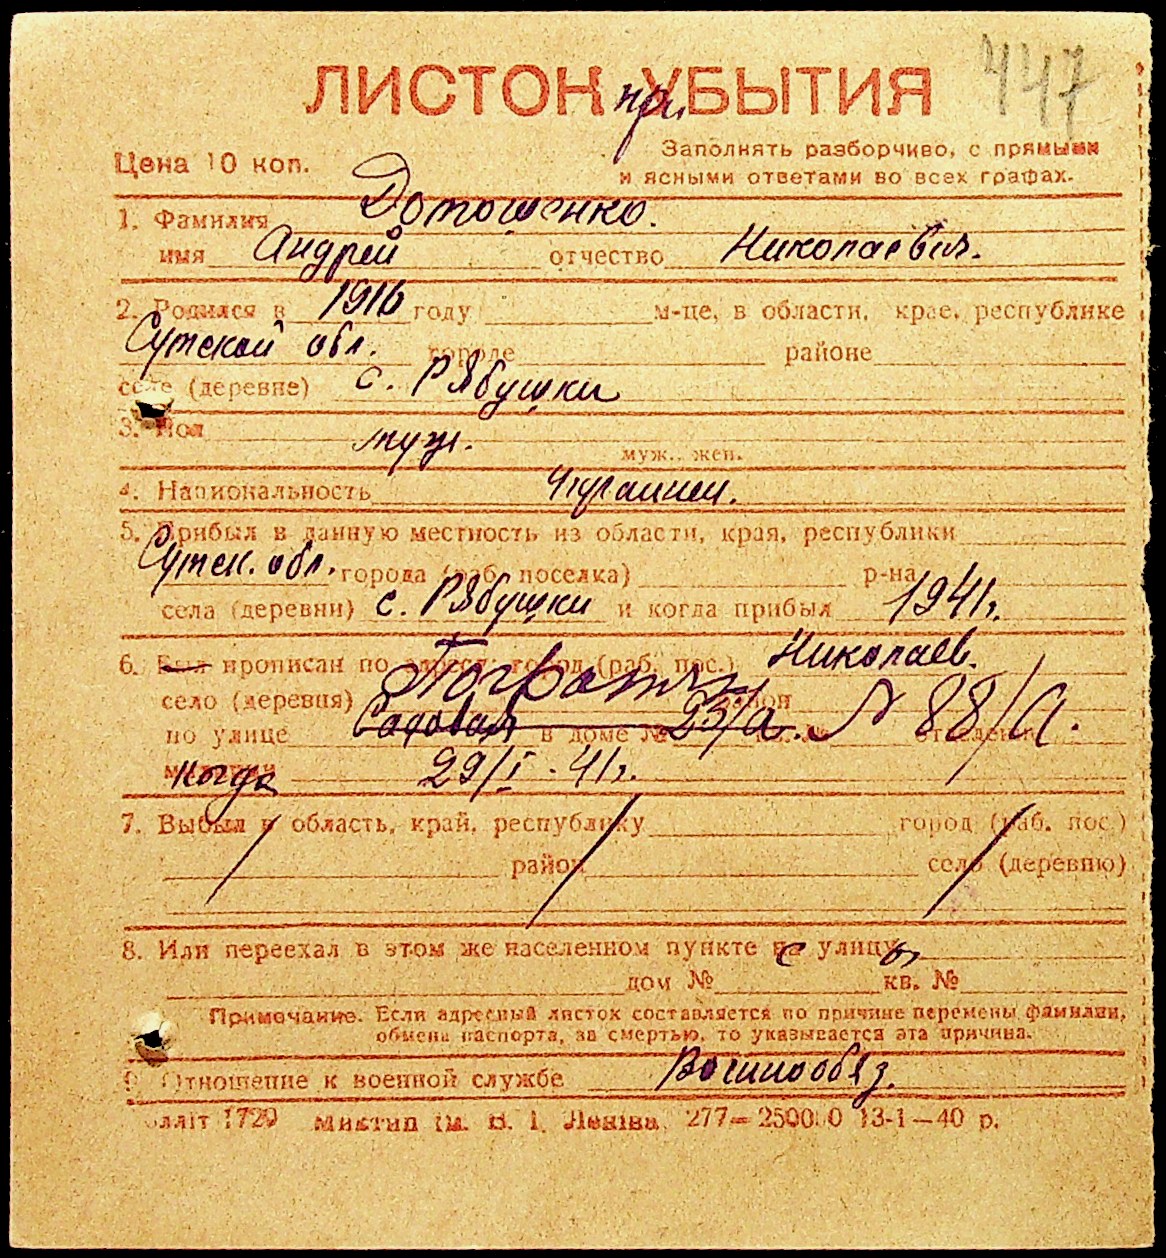 447
ЛИСТОК при УБЫТИЯ
Цена 10 коп.
Заполнять разборчиво, с прямыми
и ясными ответами во всех графах.
1. Фамилия Дотошенко.
имя Андрей отчество Николаевич.
2. Родился в 1916 году м-це, в области, крае, республике
Сумской обл. городе районе
селе (деревне) с. Рябушки
3. Пол муж. муж., жен.
4. Национальность Украинец.
5. Прибыл в данную местность из области, края, республики
Сумск. обл. города (раб. поселка) р-на
села (деревни) с. Рябушки и когда прибыл 1941г.
6. Был прописан по адресу: город (раб. пос.) Николаев.
село (деревня) район
по улице Садовая в доме № 23/а. № 88/а.
милиции Когда 29/I - 41г.
7. Выбыл в область, край, республику город (раб. пос.)
район село (деревню)
8. Или переехал в этом же населенном пункте на с улицу ы
дом № кв. №
Примечание. Если адресный листок составляется по причине перемены фамилии,
обмена паспорта, за смертью, то указывается эта причина.
9. Отношение к военной службе Военнообяз.
1720 Миктип ім. В. І. Леніна. 277— 250000 13-1—40 р.